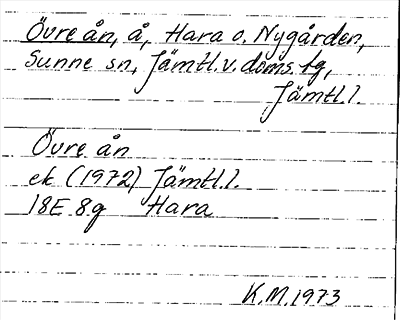 Övre ån, å, Hara o. Nygården,
Sunne sn, Jämtl.v. doms.tg,
Jämtl.l.
Övre ån
ek (1972) Jämtl.l.
18E 8g Hara
K.M.1973